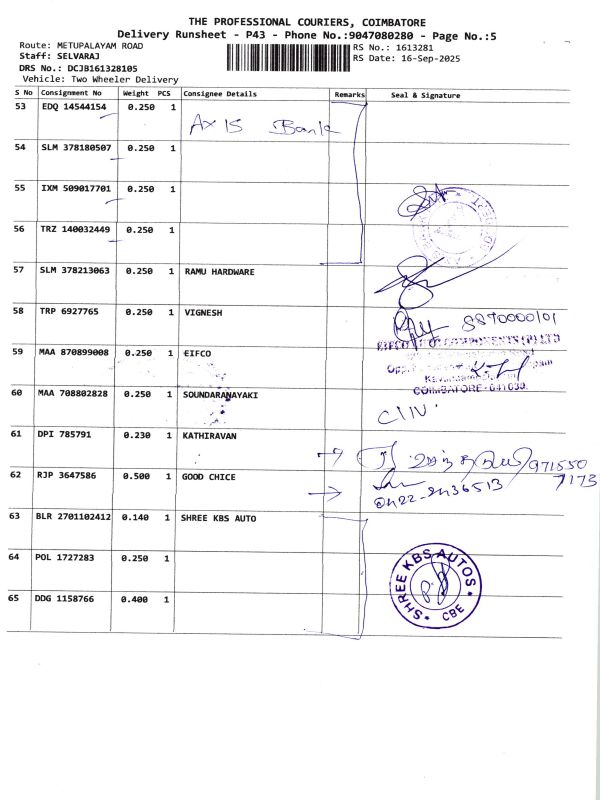 THE PROFESSIONAL COURIERS, COIMBATORE
Delivery Runsheet - P43 - Phone No.:9047080280 - Page No.:5
Route: METUPALAYAM ROAD RS No.: 1613281
Staff: SELVARAJ RS Date: 16-Sep-2025
DRS No.: DCJB161328105
Vehicle: Two Wheeler Delivery
S No Consignment No Weight PCS Consignee Details Remarks Seal & Signature
53 EDQ 14544154 0.250 1
Axis Bank
54 SLM 378180507 0.250 1
55 IXM 509017701 0.250 1
56 TRZ 140032449 0.250 1
57 SLM 378213063 0.250 1 RAMU HARDWARE
58 TRP 6927765 0.250 1 VIGNESH
59 MAA 870899008 0.250 1 EIFCO
COIMBATORE
60 MAA 708802828 0.250 1 SOUNDARANAYAKI
61 DPI 785791 0.230 1 KATHIRAVAN
971550
7173
62 RJP 3647586 0.500 1 GOOD CHICE
0422-2436513
63 BLR 2701102412 0.140 1 SHREE KBS AUTO
64 POL 1727283 0.250 1
65 DDG 1158766 0.400 1
SHREE KBS AUTOS
CBE